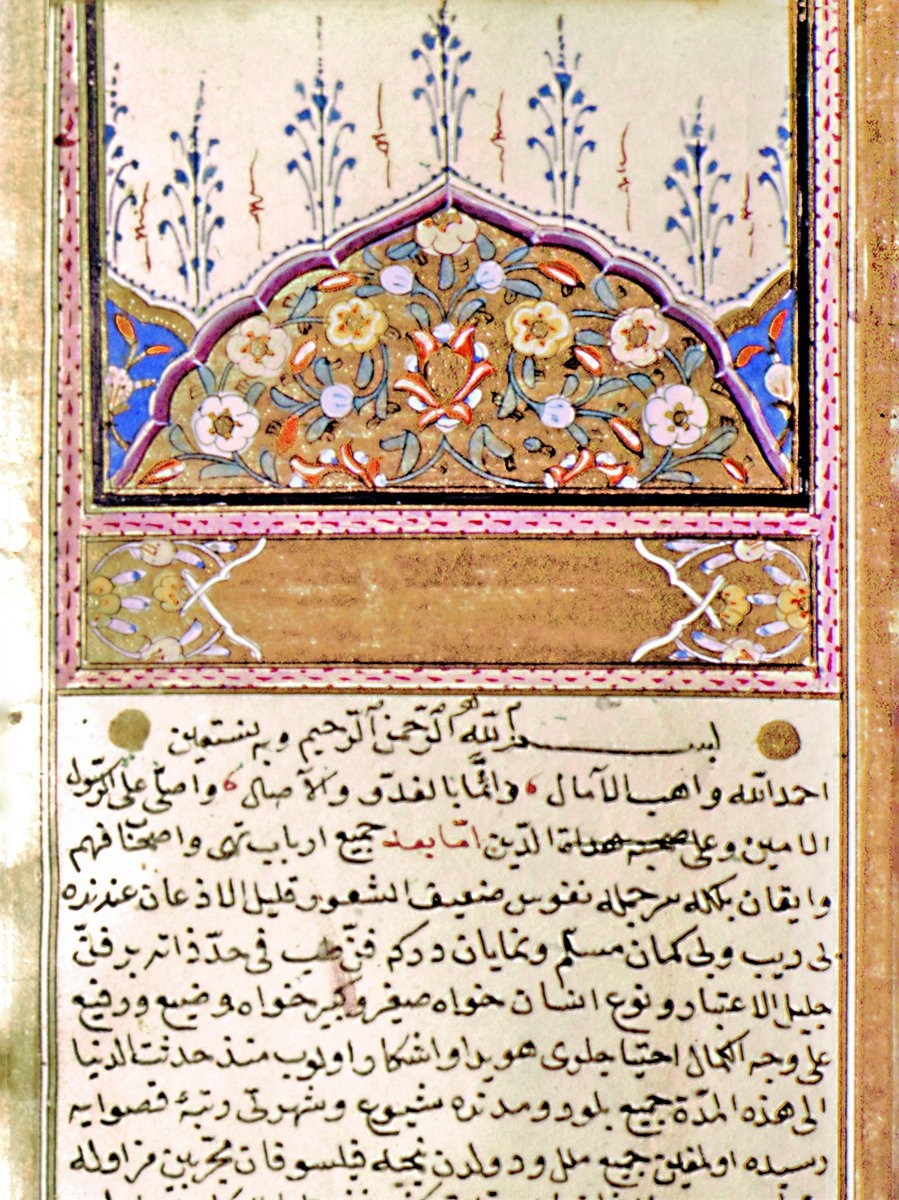 بسم الله الرحمن الرحيم وبه نستعين
احمد الله واهب الآمال دائمًا بالغدوّ والآصال واصلّى على الرسول
الامين وعلى صحبه هداة الدّين امّا بعد جميع ارباب نهى واصحاب فهم
وايقان بلكه سر جمله نفوس ضعيف الشعور قليل الاذعان عندنده
بى ريب وبى كمان مسلّم ونمايان دركه فنّ طب فى حدّ ذاته بر فنّ
جليل الاعتبار ونوع انسان خواه صغير وكبير خواه وضيع ورفيع
على وجه الكمال احتياجلرى هويدا واشكار اولوب منذ حدثت الدنيا
الى هذه المدّة جميع بلور ومدنده شيوع وشهرتى رتبهٔ قصوايه
رسيده اولمغين جميع ملل ودولدن نيجه فيلسوفان مجرّبين مزاوله